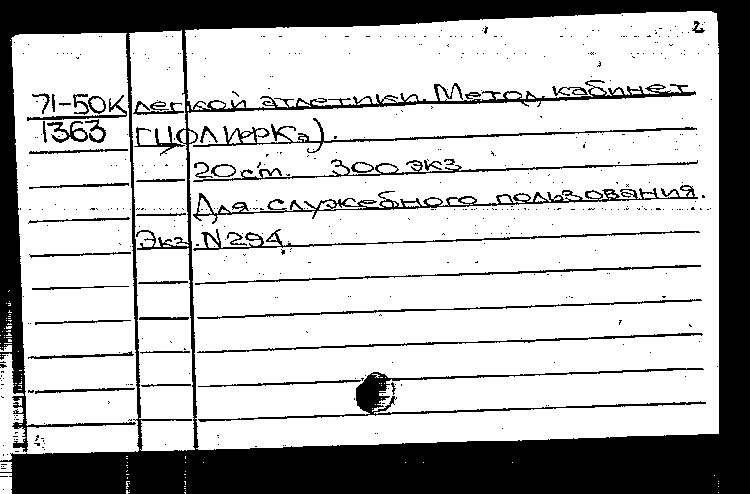 2
71-50К легкой атлетики. Метод. кабинет
1363 ГЦОЛИФКа).
20 см. 300 экз
Для служебного пользования.
Экз. N 294.